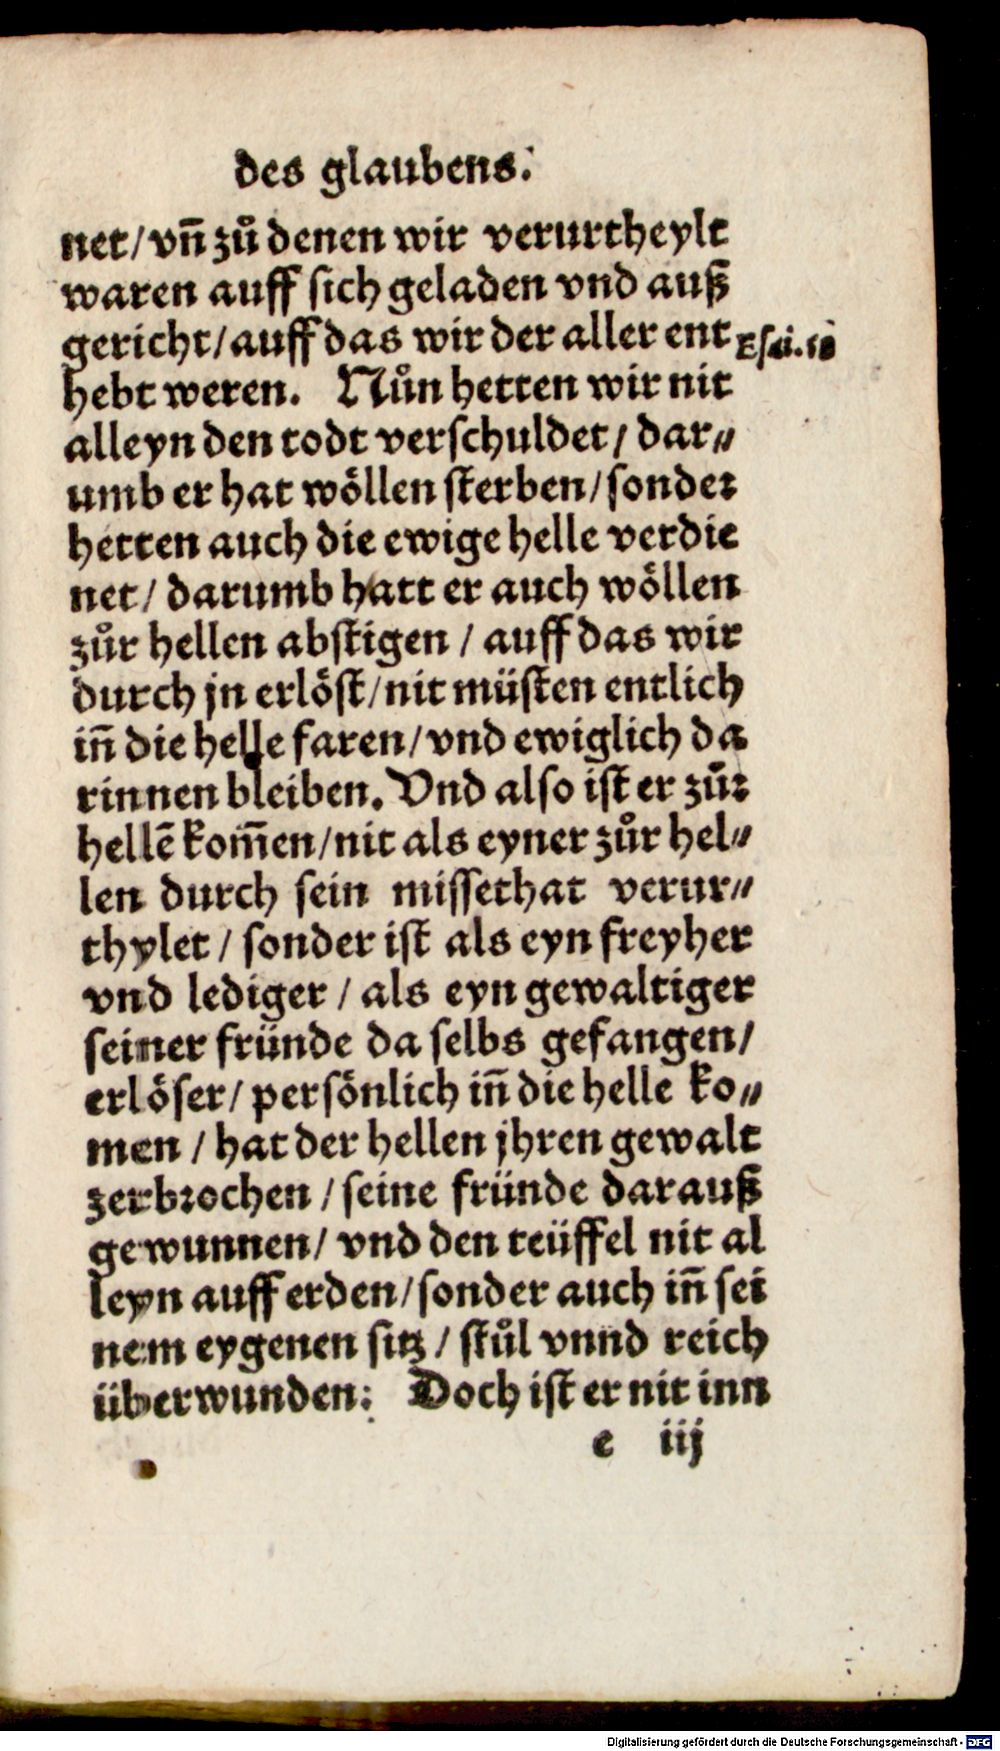 des glaubens.
net/ vn̄ zuͦ denen wir verurtheylt
waren auff sich geladen vnd auß
gericht/ auff das wir der aller ent
Esai.
hebt weren. Nuͦn hetten wir nit
alleyn den todt verschuldet/ dar⸗
umb er hat wöllen sterben/ sonder
hetten auch die ewige helle verdie
net/ darumb hatt er auch wöllen
zuͦr hellen abstigen / auff das wir
durch jn erlöst/ nit müsten entlich
in̄ die helle faren/ vnd ewiglich da
rinnen bleiben. Vnd also ist er zuͦr
hellē kom̄en/ nit als eyner zuͦr hel⸗
len durch sein missethat verur⸗
thylet / sonder ist als eyn freyher
vnd lediger / als eyn gewaltiger
seiner fründe da selbs gefangen/
erlöser/ persönlich in̄ die helle ko⸗
men / hat der hellen jhren gewalt
zerbrochen / seine fründe darauß
gewunnen/ vnd den teüffel nit al
leyn auff erden/ sonder auch in̄ sei
nem eygenen sitz / stuͦl vnnd reich
überwunden: Doch ist er nit inn
e iij
Digitalisierung gefördert durch die Deutsche Forschungsgemeinschaft - DFG